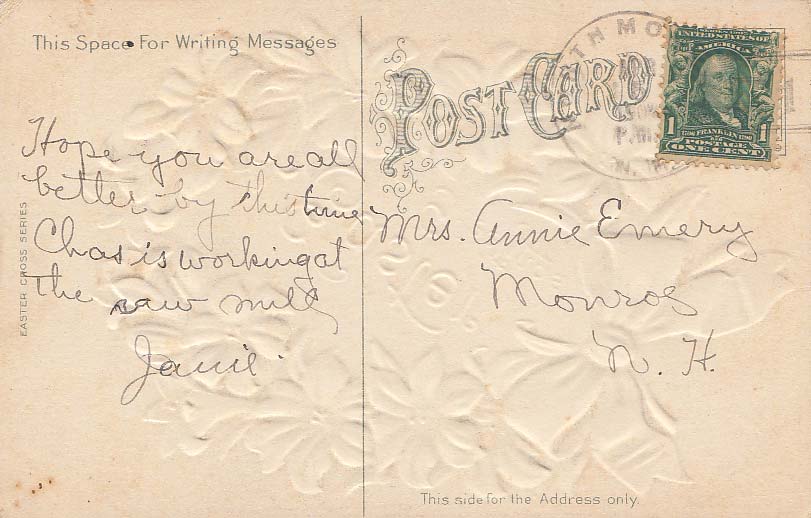 This Space For Writing Messages
POST CARD
TH MO
P.M.
N.H.
SERIES 1902
UNITED STATES OF AMERICA
1706 FRANKLIN 1790
1 POSTAGE 1
ONE CENT
Hope you are all
better by this time
Chas is working at
the saw mill
Janie.
Mrs. Annie Emery
Monroe
N. H.
EASTER CROSS SERIES
This side for the Address only.